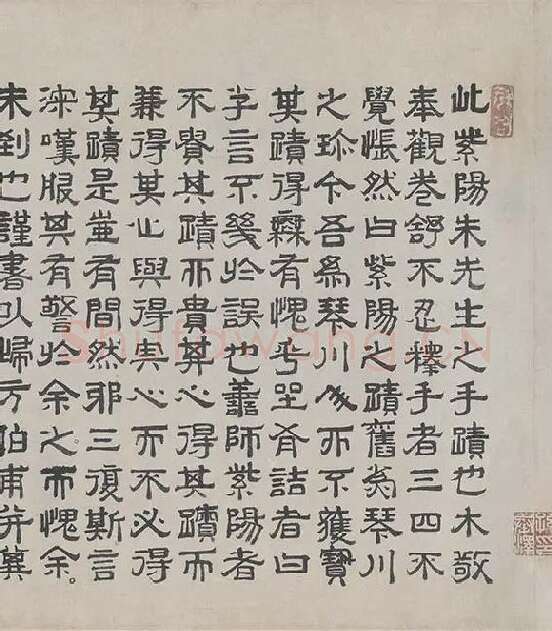 此紫陽朱先生之手蹟也木敬
奉觀卷舒不忍釋手者三四不
覺悵然曰紫陽之蹟舊為琴川
之珍今吾為琴川而不獲寶
其蹟得無有愧乎坐有詰者曰
子言不幾於誤也善師紫陽者
不貴其蹟而貴其心得其蹟而
兼得其心與得其心而不必得
其蹟是豈有間然邪三復斯言
深嘆服其有警於余之而愧余
未到也謹書以歸方伯甫并冀
Shufawang.CN